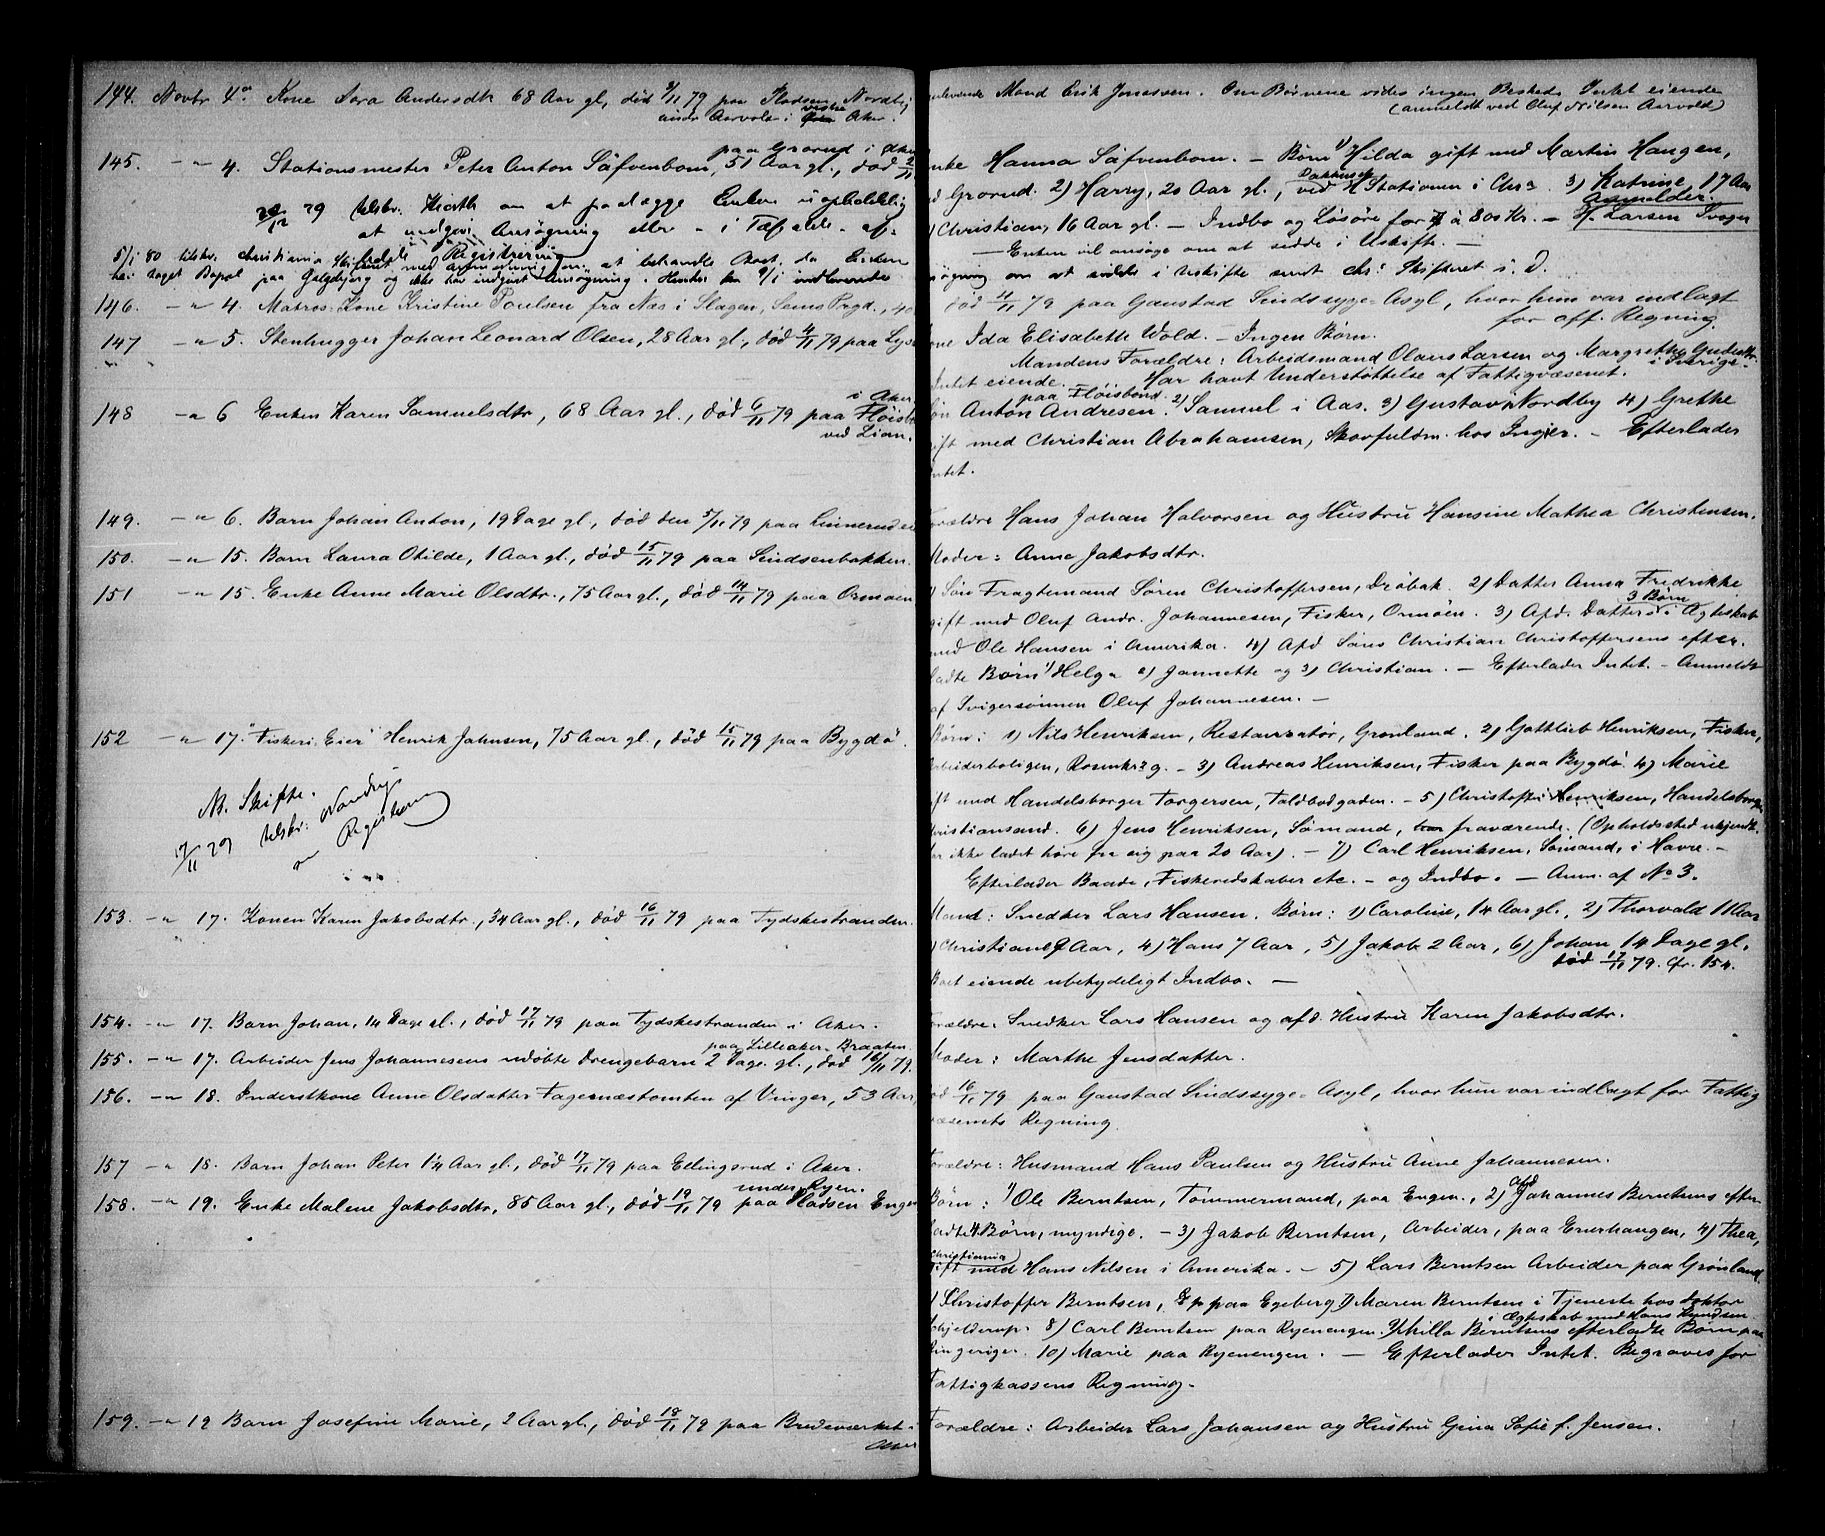 144. Novbr 4de. Kone Sora Andersdtr 68 Aar gl, død 3/11 79 paa Pladsen Nordby
under Aarvold i Østre Aker.
145. — " 4. Stationsmester Peter Anton Säfvenbom, 51 Aar gl., død 2/11
paa Grorud i Aker
79 tilskr. om at paalægge Enken uopholdelig
at indgive Ansøgning eller - i Tilfælde - af-
Registrering
5/1 80 tilskr. Christiania at behandle Boet, da Enken
har taget Bopæl paa Galgebjerg og ikke har indgivet Ansøgning.
146. — " 4. Matros-Kone Kristine Poulsen fra Næs i Slagen, Sems Prgd., 40
147 — " 5. Stenhugger Johan Leonard Olsen, 28 Aar gl., død 4/11 79 paa
148 — " 6 Enken Karen Samuelsdtr, 68 Aar gl., død 6/11 79 paa Fløisb
i Aker
ved Lian.
149. — " 6. Barn Johan Anton, 19 Dage gl., død den 5/11 79 paa Linnerud
150. — " 15. Barn Laura Otilde, 1 Aar gl., død 15/11 79 paa Sindsenbakken.
151 — " 15. Enke Anne Marie Olsdtr., 75 Aar gl., død 14/11 79 paa Ormøen
152 — " 17. "Fiskeri Eier" Henrik Johnsen, 75 Aar gl., død 15/11 79 paa Bygdø.
NB. Skifte.
17/11 79 tilskr.
om Registrering
153. — " 17. Konen Karen Jakobsdtr., 34 Aar gl., død 16/11 79 paa Tydskestranden.
154. — " 17. Barn Johan, 14 Dage gl., død 17/11 79 paa Tydskestranden i Aker.
155. — " 17. Arbeider Jens Johannesens udøbte Drengebarn 2 Dage gl., død 16/11 79.
paa Lilleaker-Braaten
156. — " 18. Inderstkone Anne Olsdatter Fagernæstomten af Vinger, 53 Aar,
157 — " 18. Barn Johan Peter 14 Aar gl., død 17/11 79 paa Ellingsrud i Aker.
158. — " 19. Enke Malene Jakobsdtr, 85 Aar gl., død 19/11 79 paa Pladsen Engen
under Ryen.
159. — " 19 Barn Josefine Marie, 2 Aar gl., død 18/11 79 paa Bredeværket i
Aker
Mand Erik Jonassen. Om Børnene vides ingen Besked. Intet eiende
(anmeldt ved Oluf Nilsen Aarvold)
nke Hanna Säfvenbom. — Børn 1) Hilda gift med Martin Haugen,
Grorud. 2) Harry, 20 Aar gl., ved H Stationen i Chra. 3) Katrine, 17 Aar
Christian, 16 Aar gl. — Indbo og Løsøre for à 800 Kr. — Anmelder: H. Larsen Svoger
— Enken vil ansøge om at sidde i Uskifte. —
øgning om at sidde i Uskifte sendt Skifteret s. D.
død 4/11 79 paa Gaustad Sindssyge-Asyl, hvor hun var indlagt
for off. Regning.
one Ida Elisabeth Wold. — Ingen Børn.
Mandens Forældre: Arbeidsmand Olaus Larsen og Margrethe
i Sverige.
Intet eiende. Har havt Understøttelse af Fattigvæsenet.
paa Fløisbonn
øn Anton Andresen. 2) Samuel i Aas. 3) Gustav i Nordby 4) Grethe
gift med Christian Abrahamsen, Skovfuldm. hos Ingier. — Efterlader
ntet.
Forældre Hans Johan Halvorsen og Hustru Hansine Mathea Christensen.
Moder: Anne Jakobsdtr.
1) Søn Fragtemand Søren Christoffersen, Drøbak. 2) Datter Anna Fredrikke
gift med Oluf Andr. Johannesen, Fisker, Ormøen. 3) Afd. Datters 3 Børn i Ægteskab
med Ole Hansen i Amerika. 4) Afd Søns Christian Christoffersens efter-
ladte Børn 1) Helga 2) Jannette og 3) Christian. — Efterlader Intet. — Anmeldt
af Svigersønnen Oluf Johannesen. —
Børn: 1) Nils Henriksen, Restauratør, Grønland. 2) Gottlieb Henriksen, Fisker,
Arbeiderboligen, Rosenkr. g. — 3) Andreas Henriksen, Fisker paa Bygdø. 4) Marie
gift med Handelsborger Torgersen, Toldbodgaden. — 5) Christoffer Henriksen, Handelsborger
Christiansand. 6) Jens Henriksen, Sømand, fraværende. (Opholdssted ukjendt.
har ikke ladet høre fra sig paa 20 Aar). — 7) Carl Henriksen, Sømand, i Havre. —
Efterlader Baade, Fiskeredskaber etc. — og Indbo. — Anm. af No 3.
Mand: Snedker Lars Hansen. Børn: 1) Caroline, 14 Aar gl., 2) Thorvald 11 Aar
3) Christian 9 Aar, 4) Hans 7 Aar, 5) Jakob 2 Aar, 6) Johan 14 Dage gl.
død 17/11 79. cfr. 154.
Boet eiende ubetydeligt Indbo. —
Forældre: Snedker Lars Hansen og afd. Hustru Karen Jakobsdtr.
Moder: Marthe Jensdatter.
død 16/11 79 paa Gaustad Sindssyge-Asyl, hvor hun var indlagt for Fattig
væsenets Regning.
Forældre: Husmand Hans Paulsen og Hustru Anne Johannesen.
Børn: 1) Ole Berntsen, Tømmermand, paa Engen., 2) Afd Johannes Berntsens efter
ladte 4 Børn, myndige. — 3) Jakob Berntsen, Arbeider, paa Enerhaugen, 4) Thea,
Christiania
gift med Hans Nilsen i Amerika. — 5) Lars Berntsen Arbeider paa Grønland.
6) Christoffer Berntsen, paa Egeberg 7) Maren Berntsen i Tjeneste hos Doktor
Schjelderup. 8) Carl Berntsen paa Ryenengen. 9) Milla Berntsens efterladte Børn paa
i Ægteskab med Hans Knudsen
Ringerige. 10) Marie paa Ryenengen. — Efterlader Intet. Begraves for
Fattigkassens Regning.
Forældre: Arbeider Lars Johansen og Hustru Gina Sofie f. Jensen.